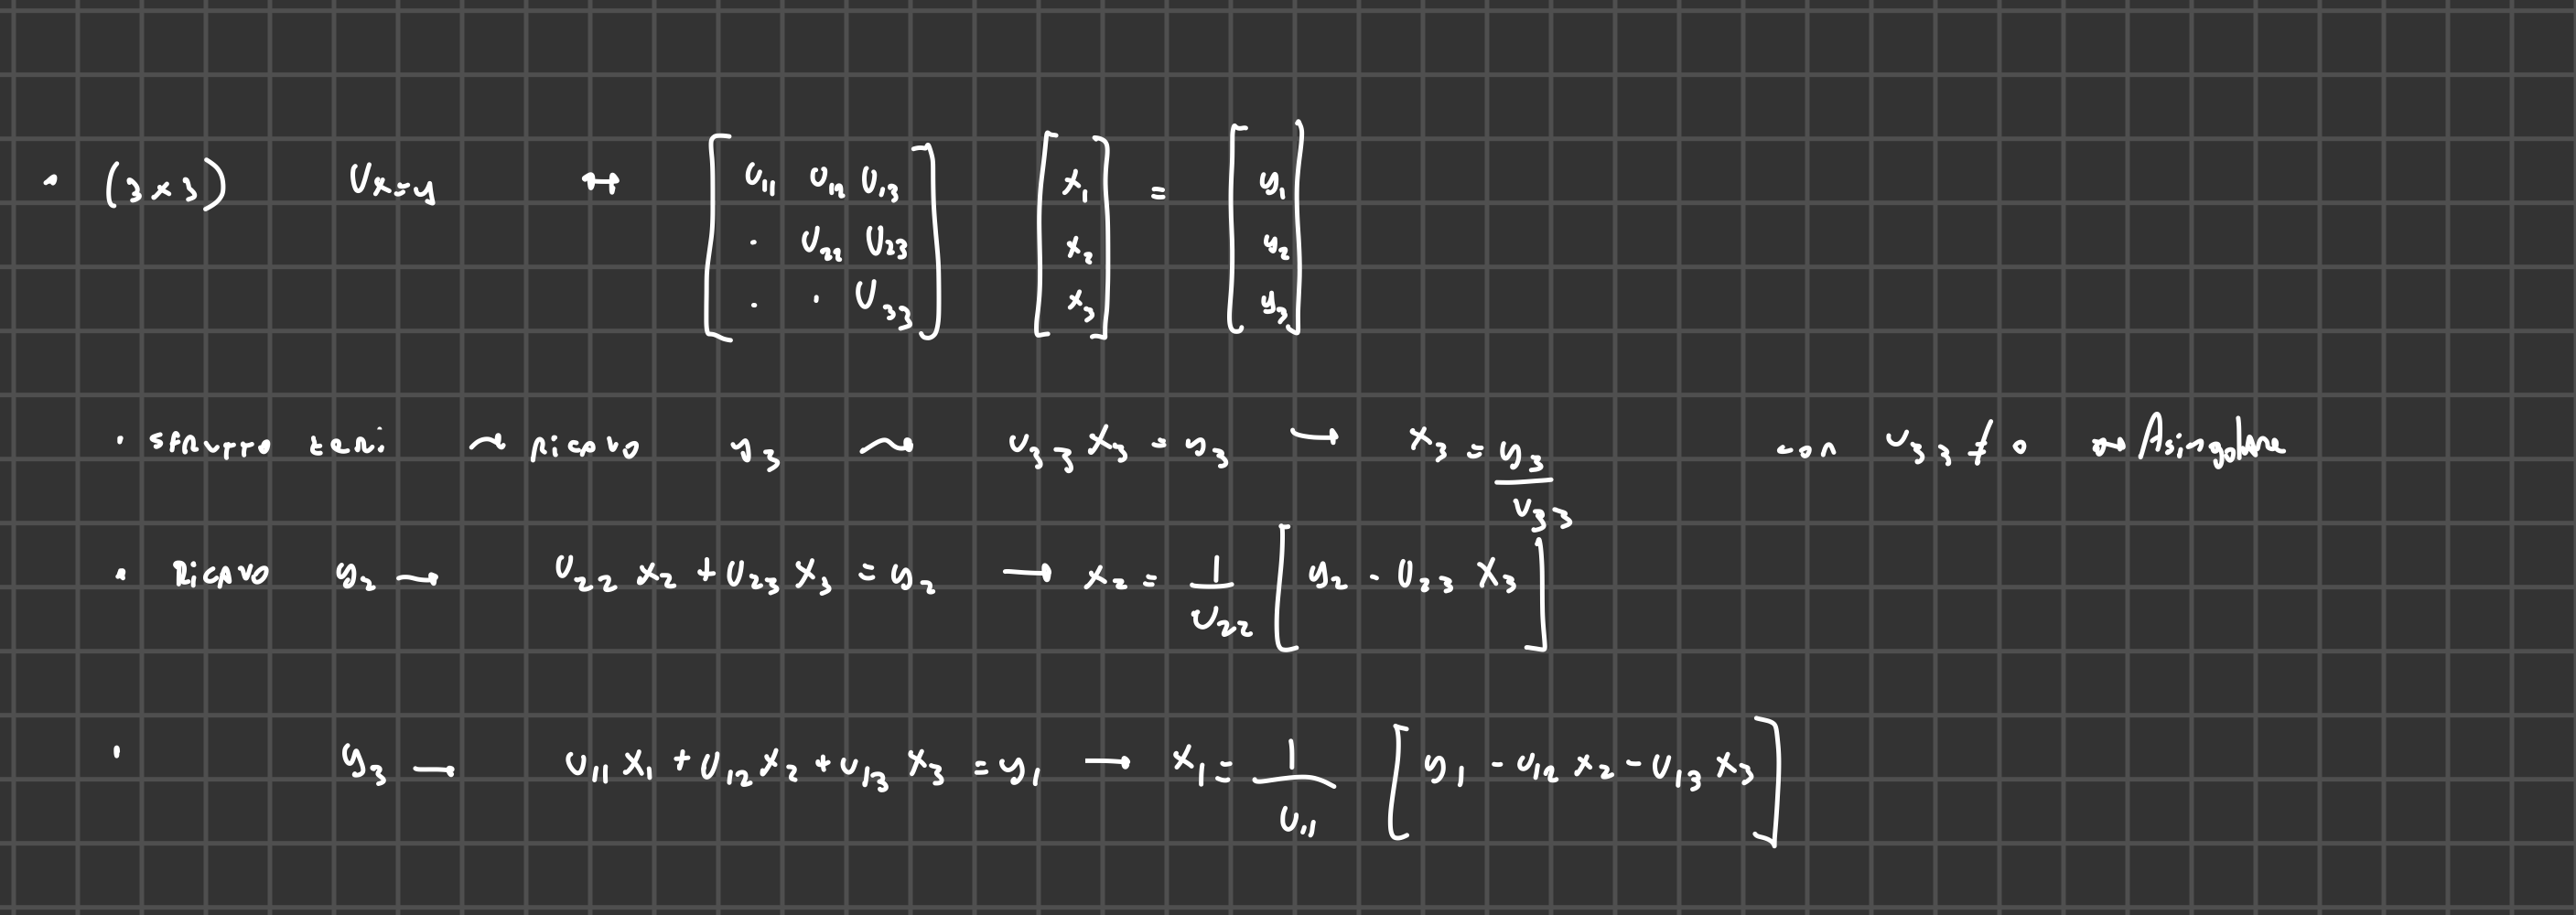 • (3x3) Ux=y ↔ [ U11 U12 U13 ] [ x1 ] = [ y1 ]
[ . U22 U23 ] [ x2 ] [ y2 ]
[ . . U33 ] [ x3 ] [ y3 ]
• sfrutto zeri ~ ricavo y3 ⇝ U33 x3 = y3 → x3 = y3/U33 con U33 ≠ 0
• Ricavo y2 → U22 x2 + U23 x3 = y2 → x2 = 1/U22 [ y2 - U23 x3 ]
• y3 → U11 x1 + U12 x2 + U13 x3 = y1 → x1 = 1/U11 [ y1 - U12 x2 - U13 x3 ]